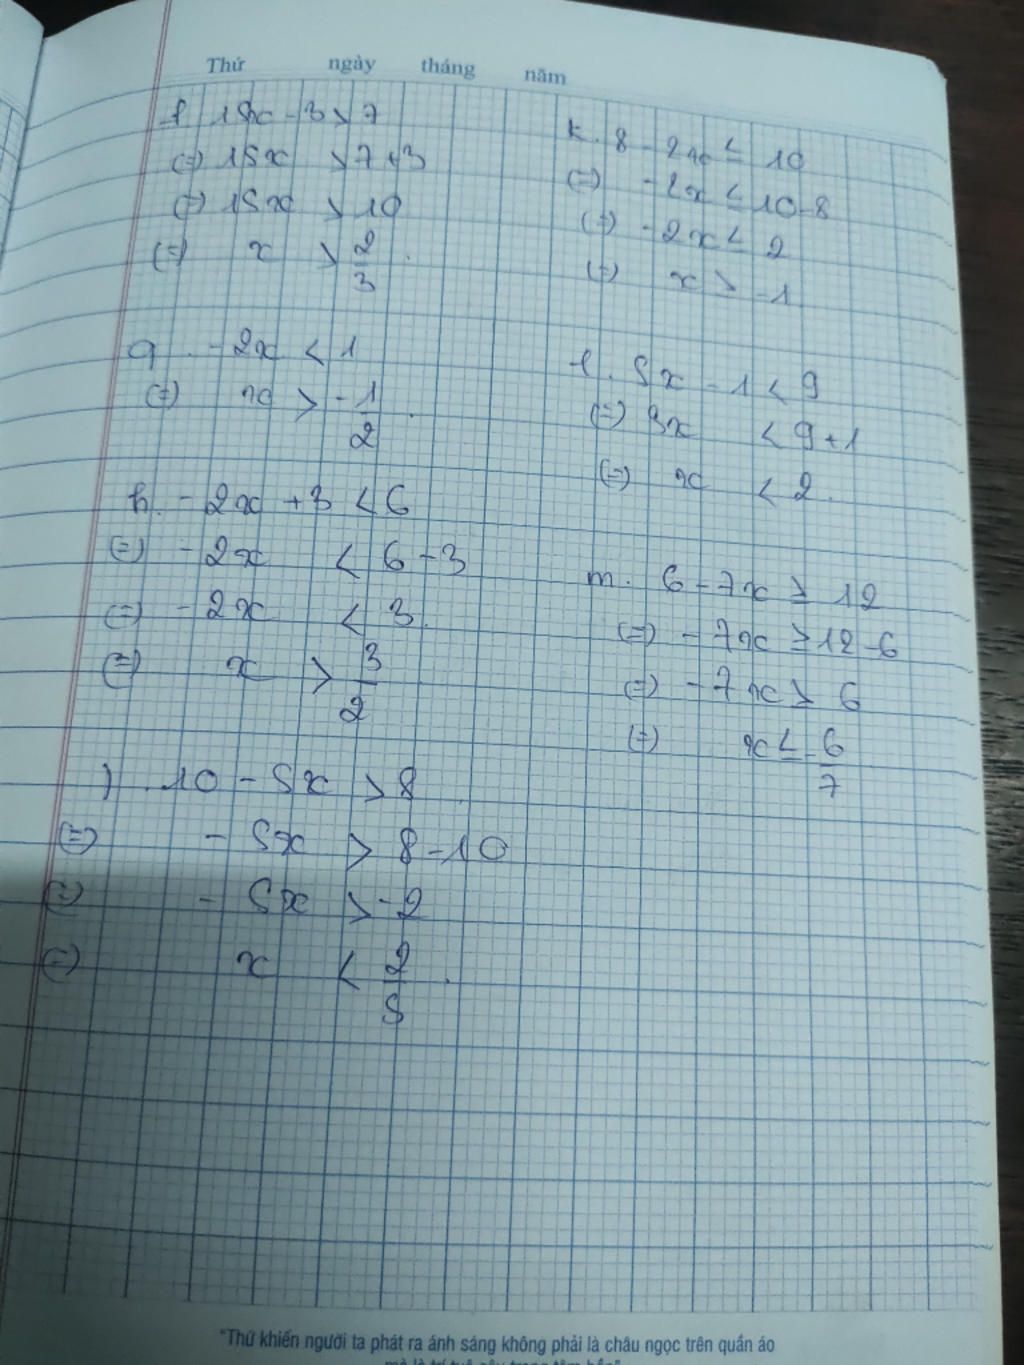 Thứ ngày tháng năm
f. 15x - 3 > 7
(=) 15x > 7 + 3
(=) 15x > 10
(=) x > 2/3.
g. - 2x < 1
(=) x > -1/2.
h. - 2x + 3 < 6
(=) - 2x < 6 - 3
(=) - 2x < 3.
(=) x > 3/2
j. 10 - 5x > 8
(=) - 5x > 8 - 10
(=) - 5x > -2
(=) x < 2/5.
k. 8 - 2x ≤ 10
(=) - 2x ≤ 10-8
(=) - 2x ≤ 2
(=) x ≥ -1
l. 5x - 1 < 9
(=) 5x < 9 + 1
(=) x < 2.
m. 6 - 7x ≥ 12
(=) - 7x ≥ 12 - 6
(=) - 7x ≥ 6
(=) x ≤ -6/7
"Thứ khiến người ta phát ra ánh sáng không phải là châu ngọc trên quần áo